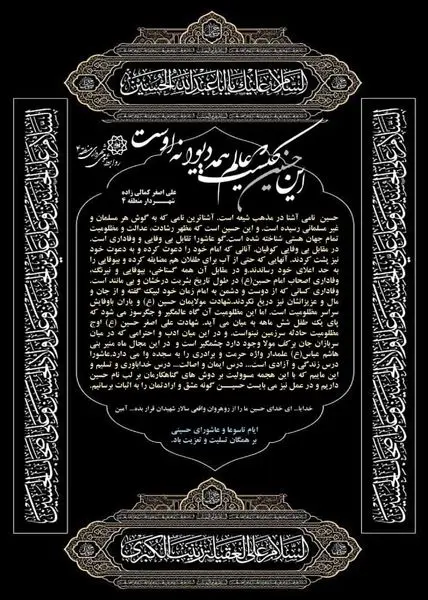 السلام علیک یا اباعبدالله الحسین
این حسین کیست که عالم همه دیوانه اوست
علی اصغر کمالی زاده
شهردار منطقه ۴
حسین نامی آشنا در مذهب شیعه است. آشناترین نامی که به گوش هر مسلمان و
غیر مسلمانی رسیده است. و این حسین است که مظهر رشادت، عدالت و مظلومیت
تمام جهان هستی شناخته شده است.گو عاشورا تقابل بی وفایی و وفاداری است.
در مقابل بی وفایی کوفیان، آنانی که امام خود را دعوت کرده و به دعوت خود
نیز پشت کردند. آنهایی که حتی از آب برای طفلان هم مضایقه کرده و بیوفایی را
به حد اعلای خود رساندند.و در مقابل آن همه گستاخی، بیوفایی و نیرنگ،
وفاداری اصحاب امام حسین(ع) در طول تاریخ بشریت درخشان و بی مانند است.
وفاداری کسانی که از دوست و دشمن به امام زمان خود لبیک گفته و از جان و
مال و عزیزانشان نیز دریغ نکردند.شهادت مولایمان حسین (ع) و یاران باوفایش
سراسر مظلومیت است. اما این مظلومیت آن گاه عالمگیر و جگرسوز می شود که
پای یک طفل شش ماهه به میان می آید. شهادت علی اصغر حسین (ع) اوج
مظلومیت حادثه سرزمین نینواست. و در این میان ادب و احترامی که در میان
سربازان جان بر کف مولا وجود دارد چشمگیر است و در این مجال ماه منیر بنی
هاشم عباس(ع) علمدار واژه حرمت و برادری را به سجده وا می دارد.عاشورا
درس زندگی و آزادی است... درس ایمان و اصالت... درس خداباوری و تسلیم و
این ماییم که با این هجمه مسوولیت بر دوش های گناهکارمان بر لب نام حسین
داریم و در عمل نیز می بایست حسینی گونه عشق و ارادتمان را به اثبات برسانیم.
خدایا... ای خدای حسین ما را از رهروان واقعی سالار شهیدان قرار بده... آمین
ایام تاسوعا و عاشورای حسینی
بر همگان تسلیت و تعزیت باد.
السلام علی العقیلة زینب الکبری